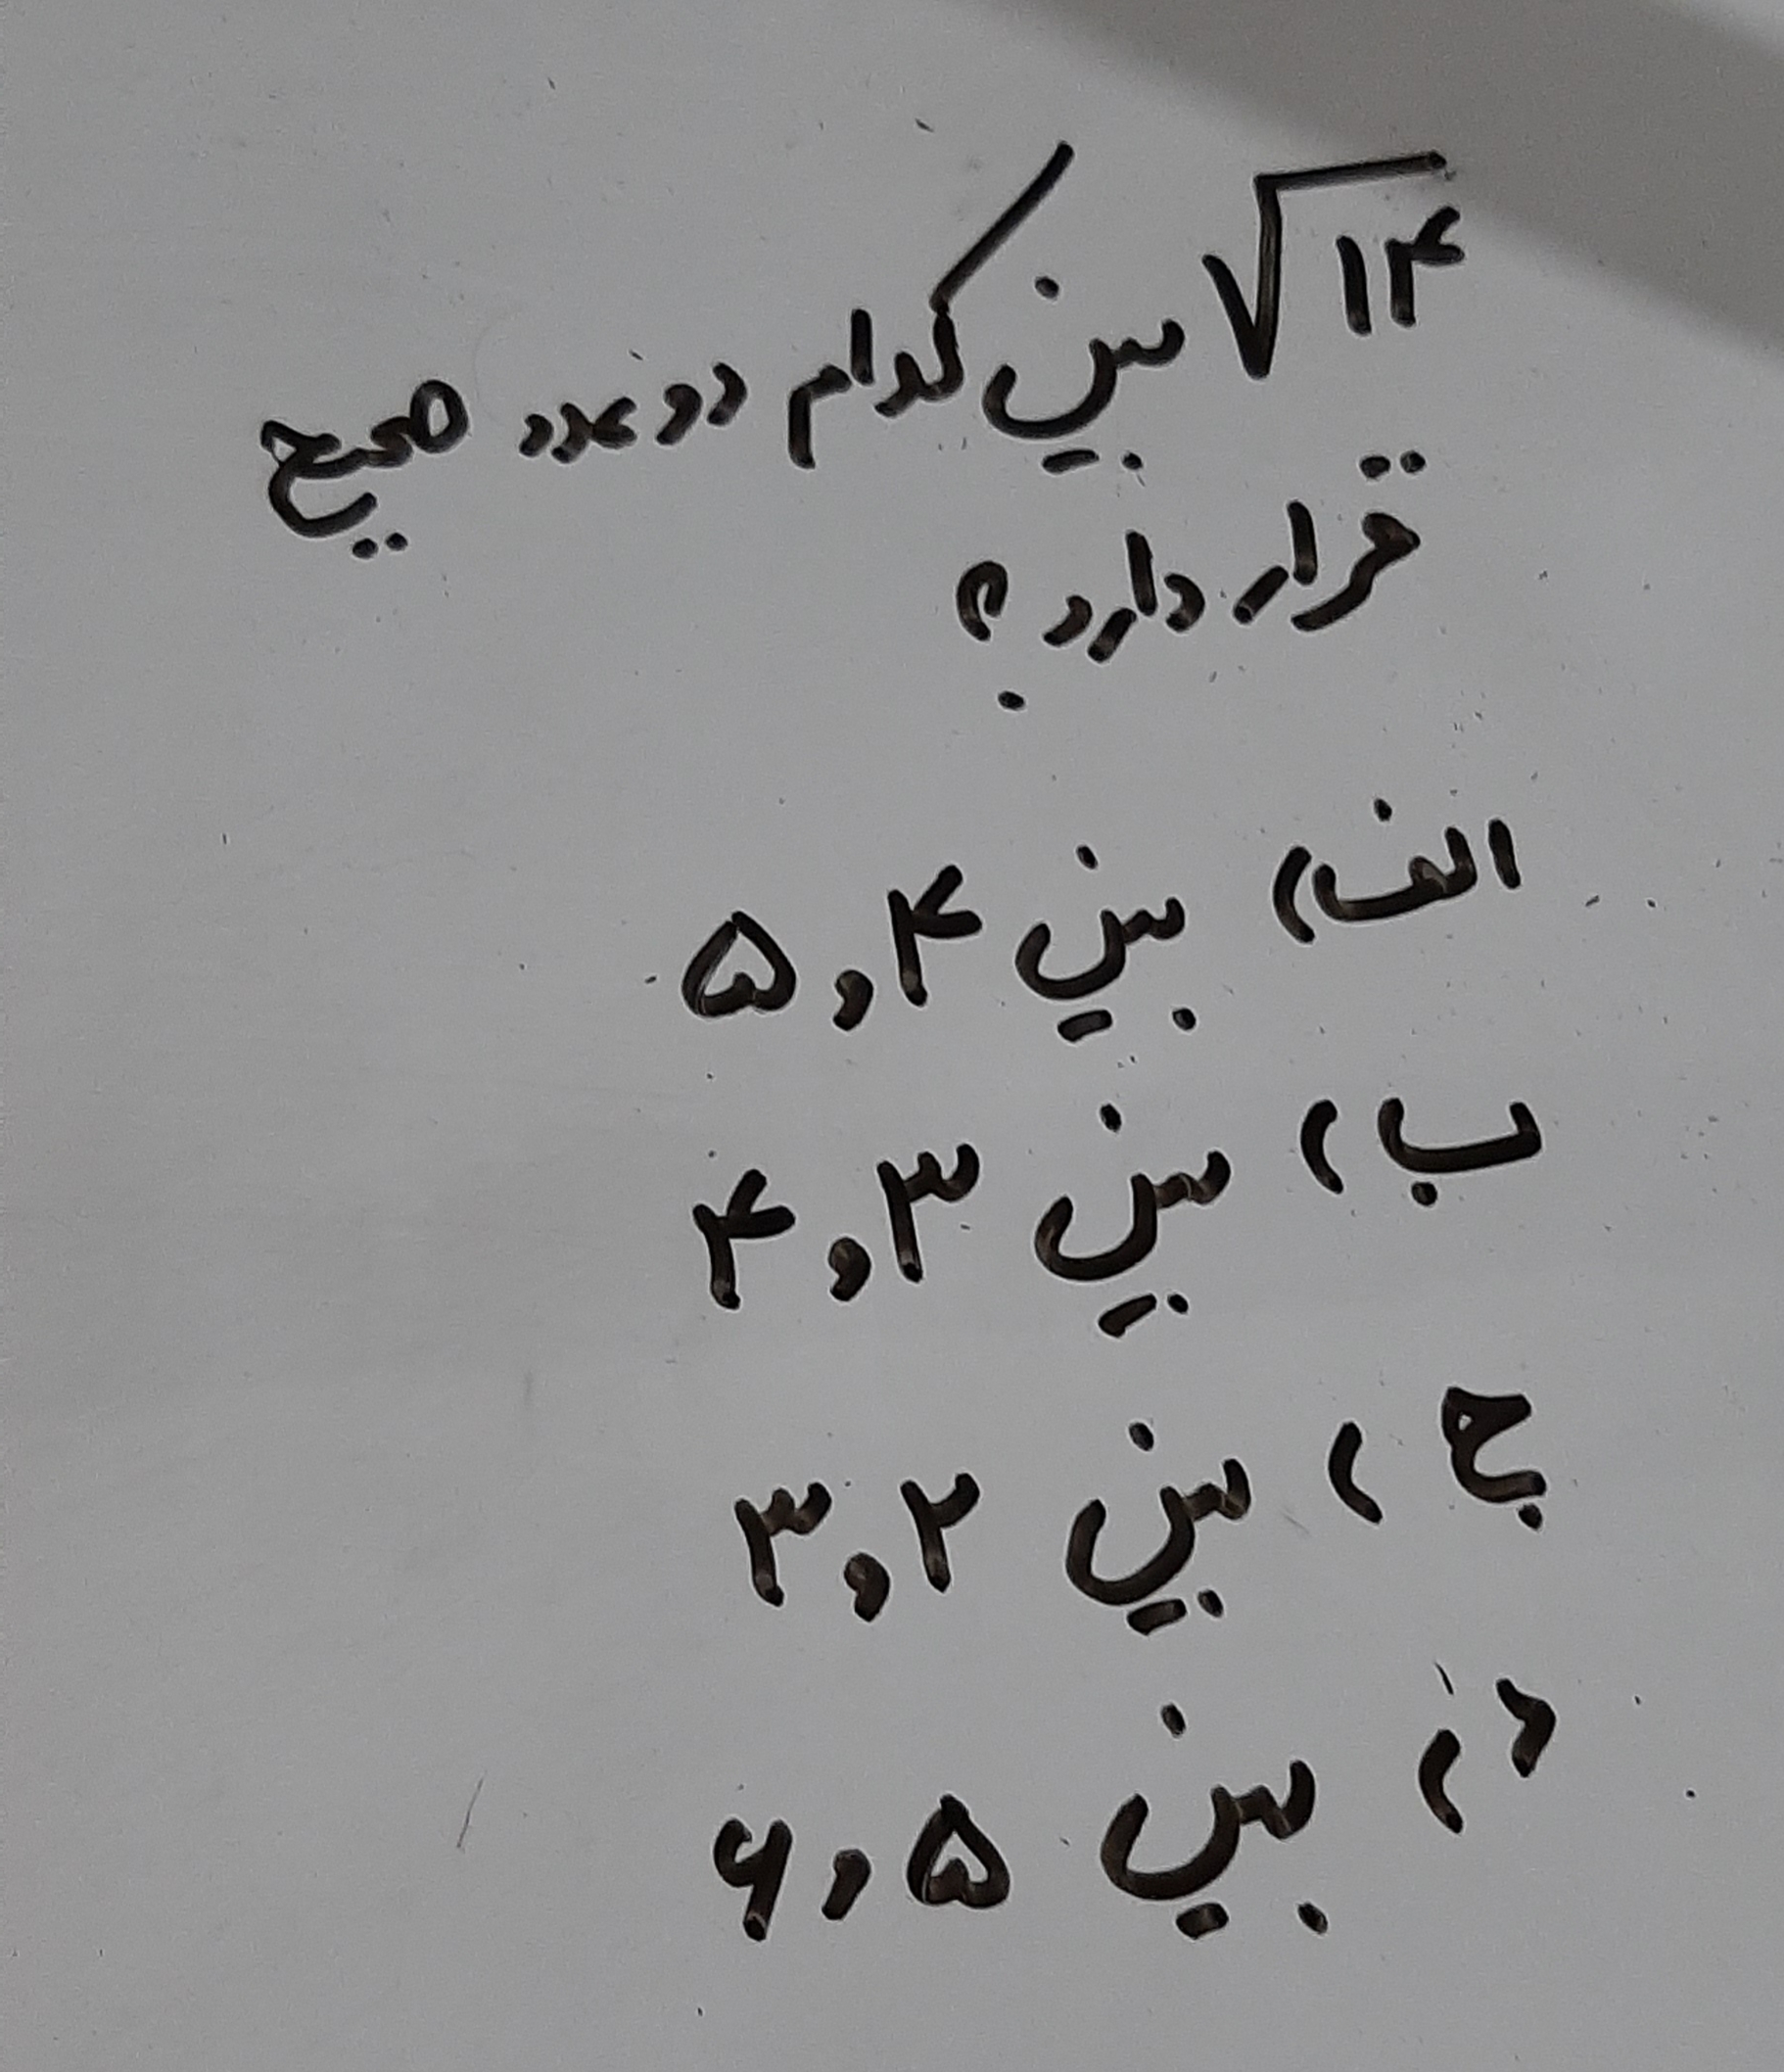 √۱۴ بین کدام دو عدد صحیح
قرار دارد؟
الف) بین ۴ و ۵
ب) بین ۳ و ۴
ج) بین ۲ و ۳
د) بین ۵ و ۶